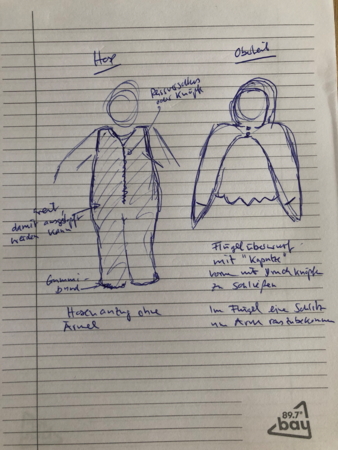 Hose
Oberteil
Reissverschluss
oder Knöpfe
weit
damit ausgestopft
werden kann
Gummi-
bund
Flügelüberwurf
mit "Kapuze"
vorne mit Druckknöpfen
zu schließen
Hosenanzug ohne
Ärmel
Im Flügel eine Schlitz
um Arme rauszubekommen
89.7
bay